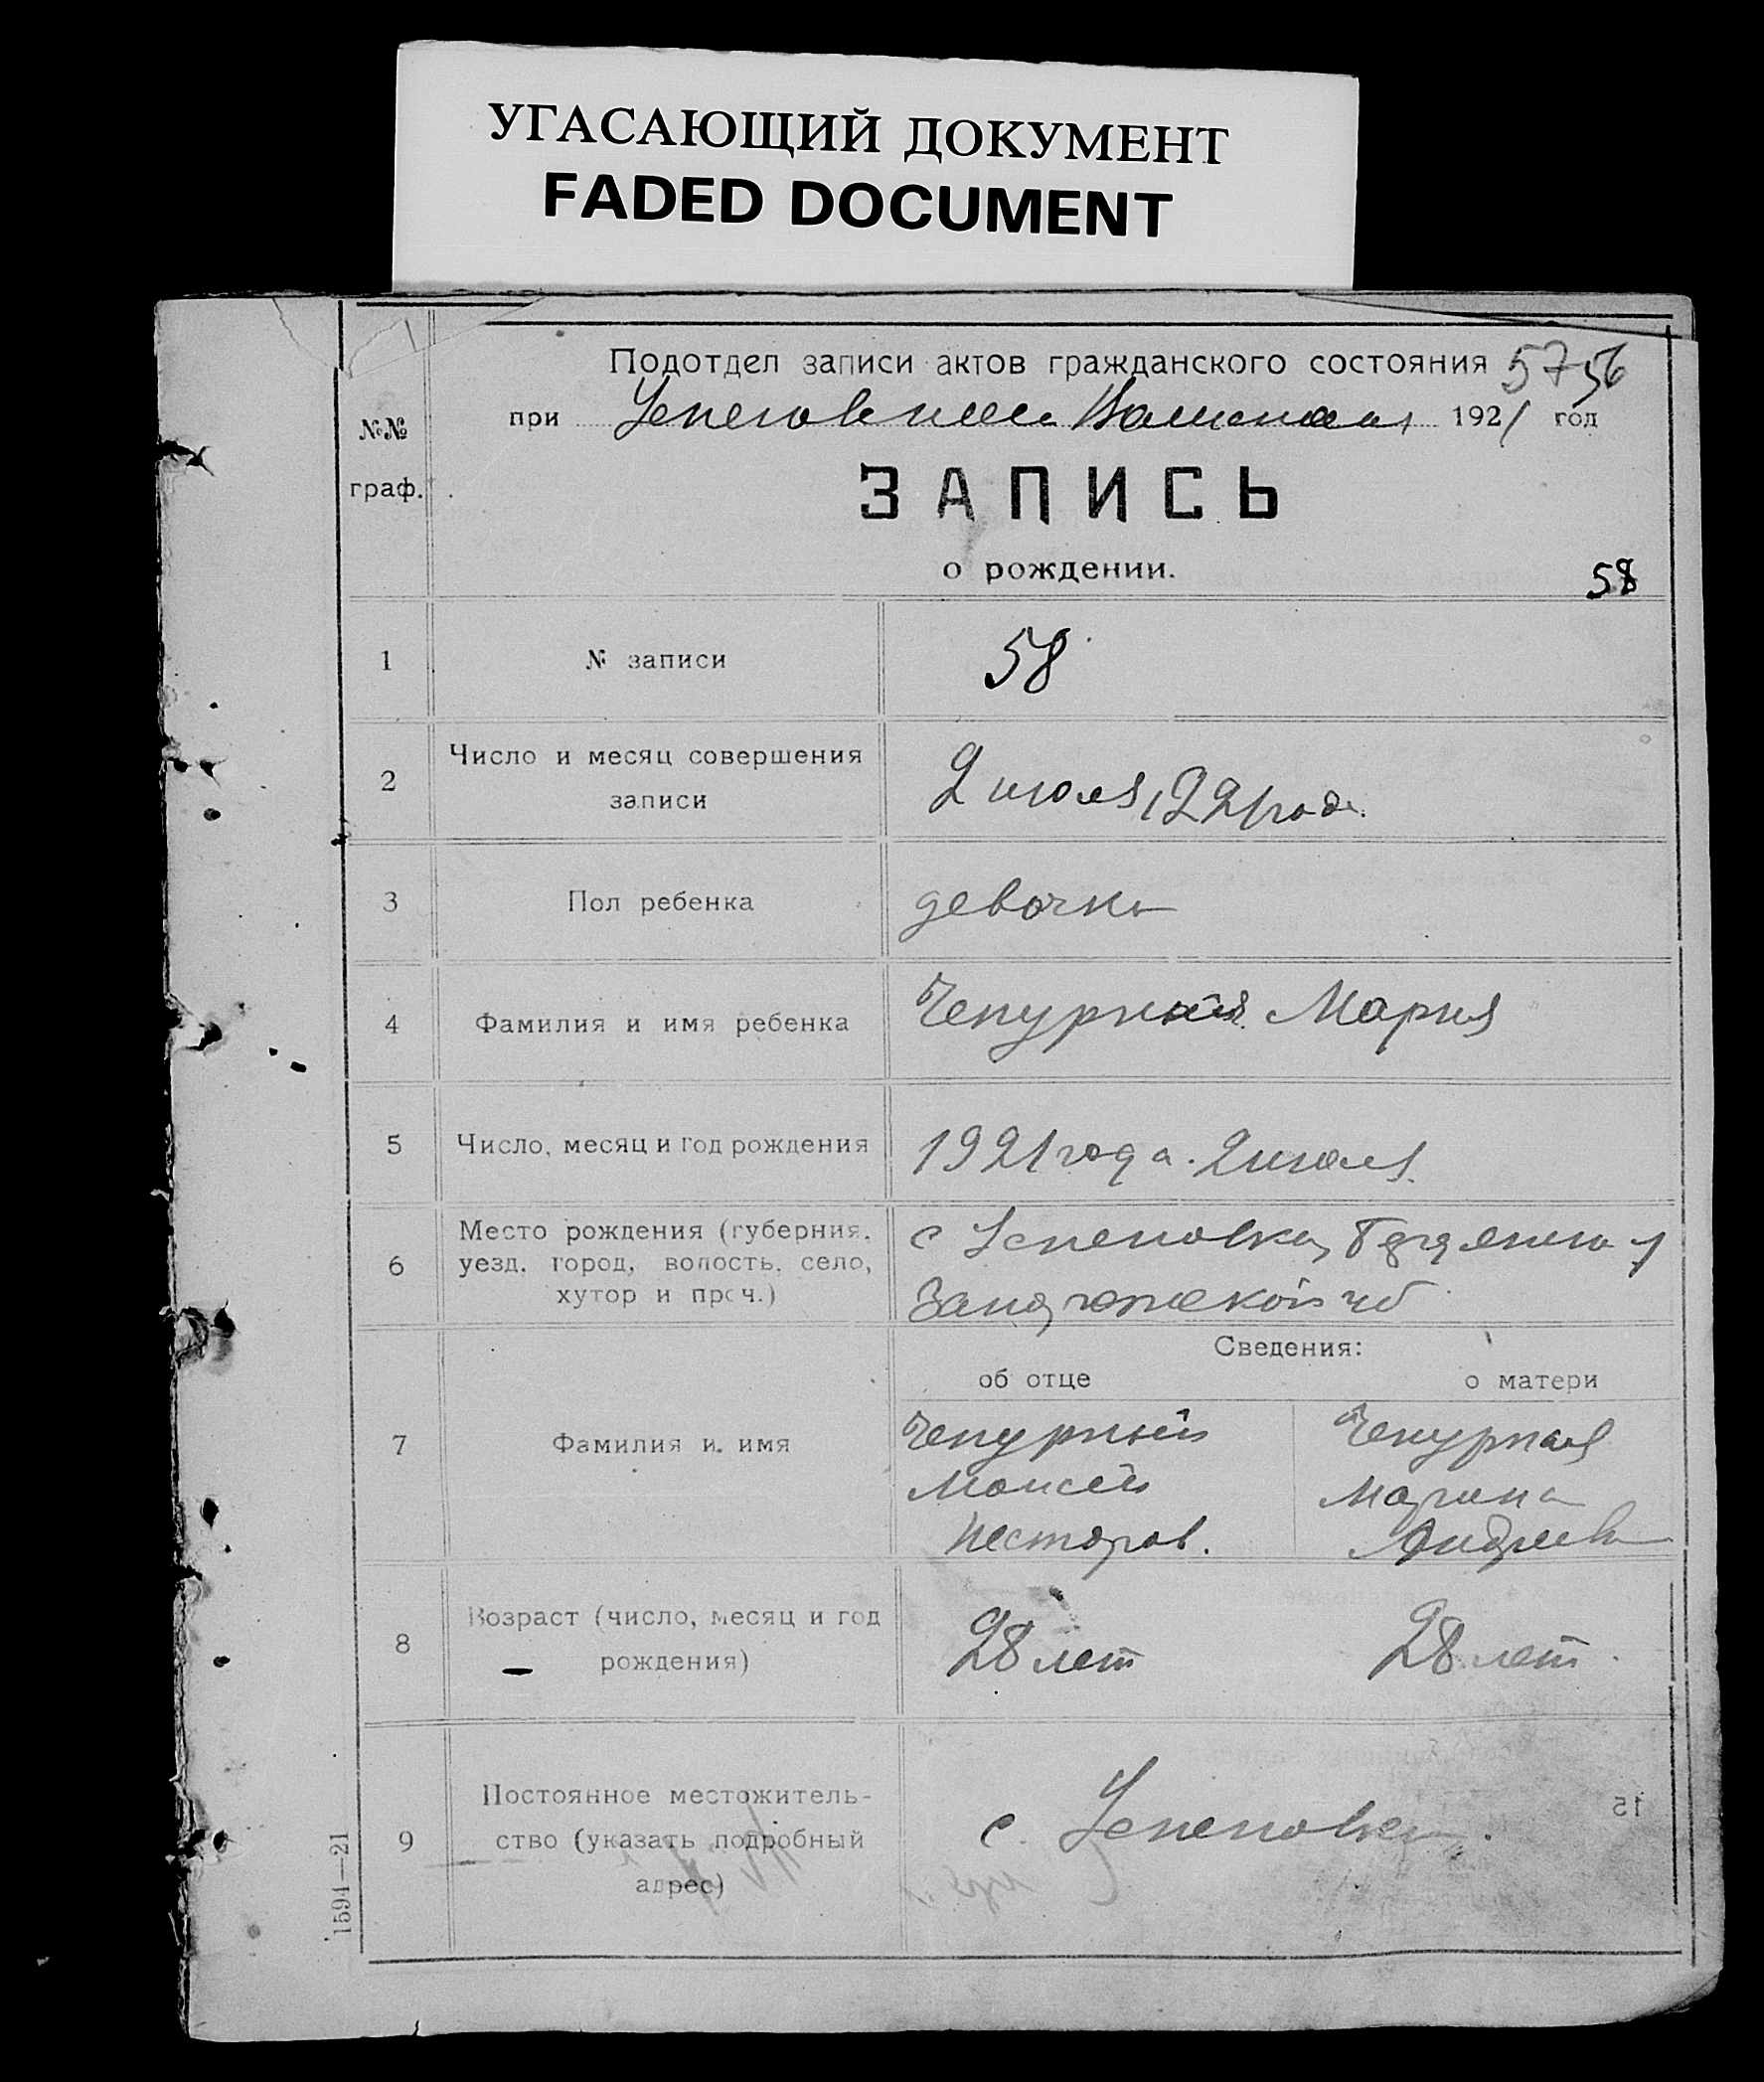 УГАСАЮЩИЙ ДОКУМЕНТ
FADED DOCUMENT
Подотдел записи актов гражданского состояния 57 56
при 1921 год
№№
граф.
ЗАПИСЬ
о рождении.
58
1 № записи 58
2 Число и месяц совершения
записи
2 июля 1921 года.
3 Пол ребенка девочка
4 Фамилия и имя ребенка Чепурная Мария
5 Число, месяц и год рождения 1921 года. 2 июля.
6 Место рождения (губерния,
уезд, город, волость, село,
хутор и проч.)
с Успеновка,
Сведения:
об отце о матери
7 Фамилия и имя
Чепурный Чепурная
Моисей Марина
Несторов. Андреев
8 Возраст (число, месяц и год
рождения)
28 лет 28 лет.
9 Постоянное местожитель-
ство (указать подробный
адрес)
с. Успеновка.
15
1594—21